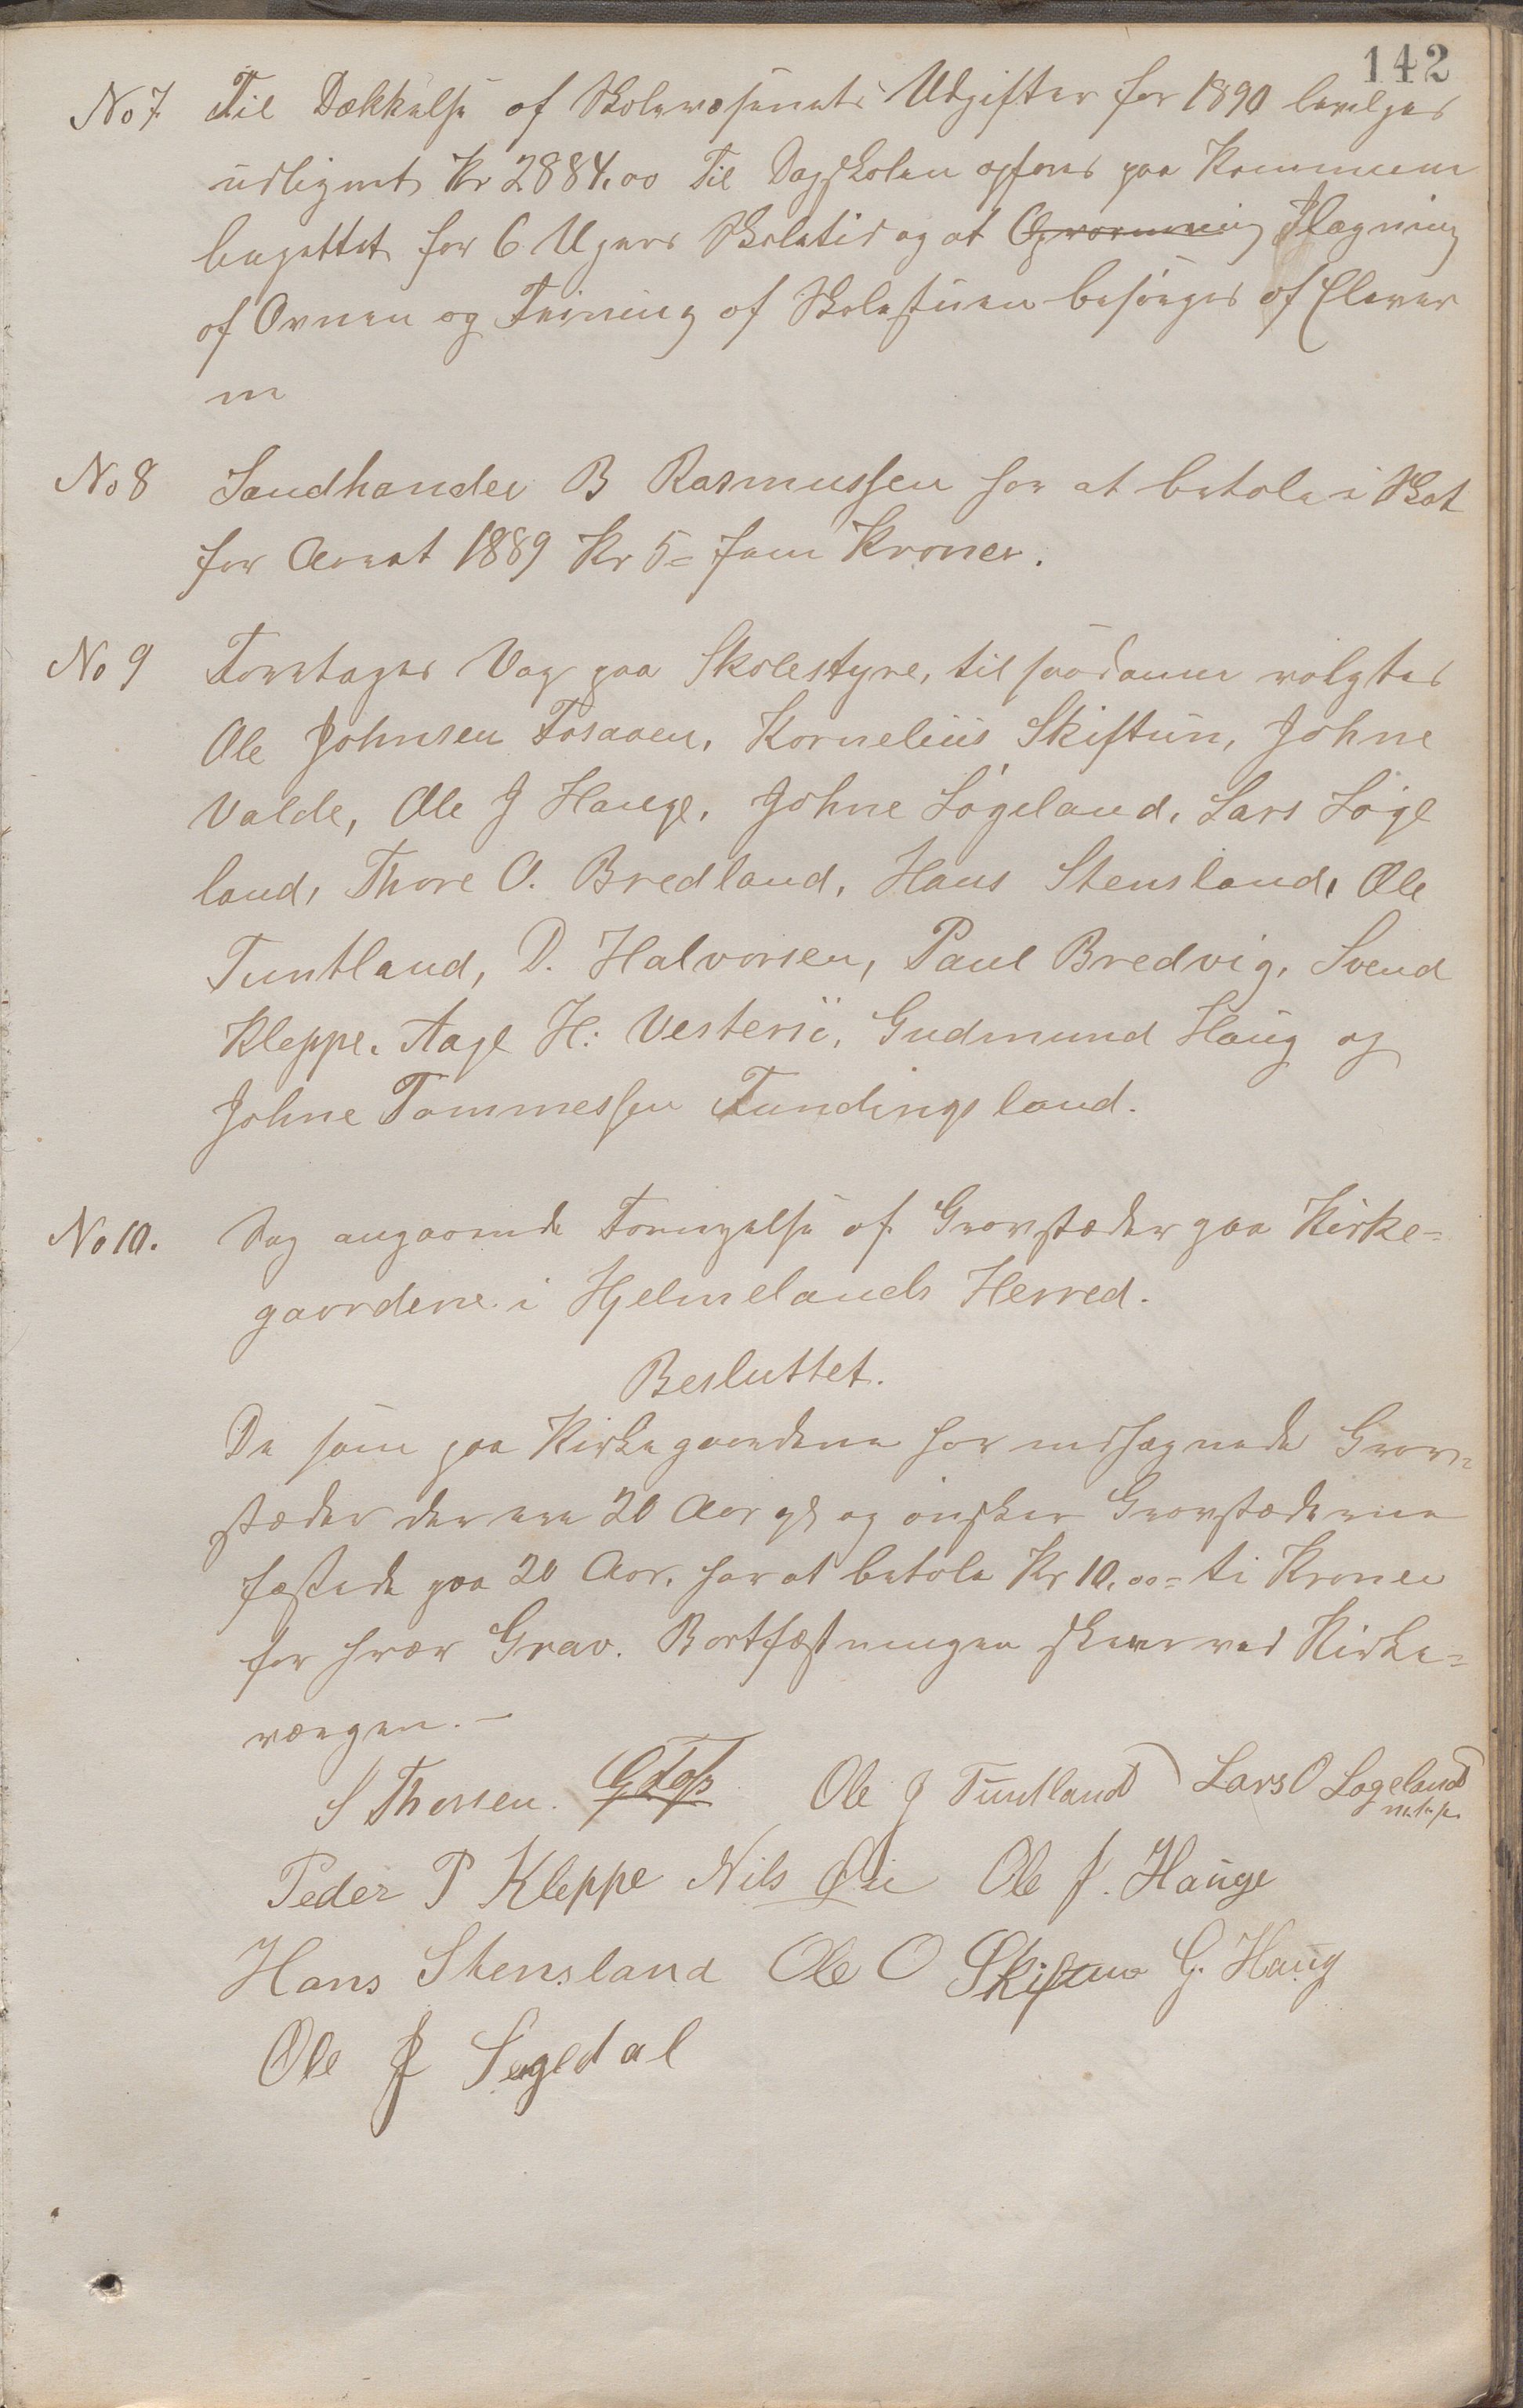 142
No 7. Til Dækkelse af Skolevæsenets Udgifter for 1890 bevilges
udlignet Kr 2884.00 Til Dagskolen opføres paa Kommune
bugettet for 6 Ugers Skoletid og at Opvarmning Ilægning
af Ovnen og Feining af Skolestuen besørges af Elever
ne
No 8 Landhandler B Rasmussen har at betale i Skat
for Aaret 1889 Kr 5= fem Kroner.
No 9 Foretages Valg paa Skolestyre, til saadanne valgtes
Ole Johnsen Fosaaen, Kornelius Skiftun, Johne
Valde, Ole J Hauge, Johne Løgeland, Lars Løge
land, Thore O. Bredland, Hans Stensland, Ole
Tuntland, D. Halvorsen, Paul Bredvig, Svend
Kleppe, Aage H: Vestersø, Gudmund Haug og
Johne Tommessen Fundingsland.
No 10. Sag angaaende Fornyelse af Gravstæder paa Kirke=
gaardene i Hjelmelands Herred.
Besluttet.
De som paa Kirkegaardene har indhægnede Grav=
stæder der ere 20 Aar gl og ønsker Gravstæderne
fæstede paa 20 Aar, har at betale Kr 10.00= ti Kroner
for hver Grav. Bortfæstningen skeer ved Kirke=
værgen. —
S Thorsen. Ole J Tuntland Lars O Løgeland
m.f.p.
Peder P Kleppe Nils Øie Ole J. Hauge
Hans Stensland Ole O Skiftun G. Haug
Ole J Segedal